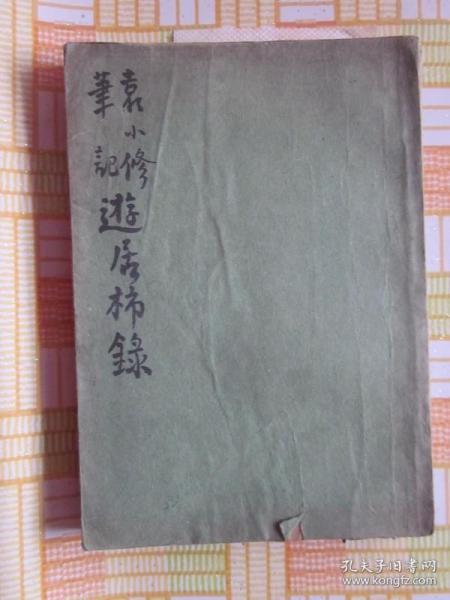 袁小修
筆記
遊居柿錄
孔夫子旧书网
www.kongfz.com